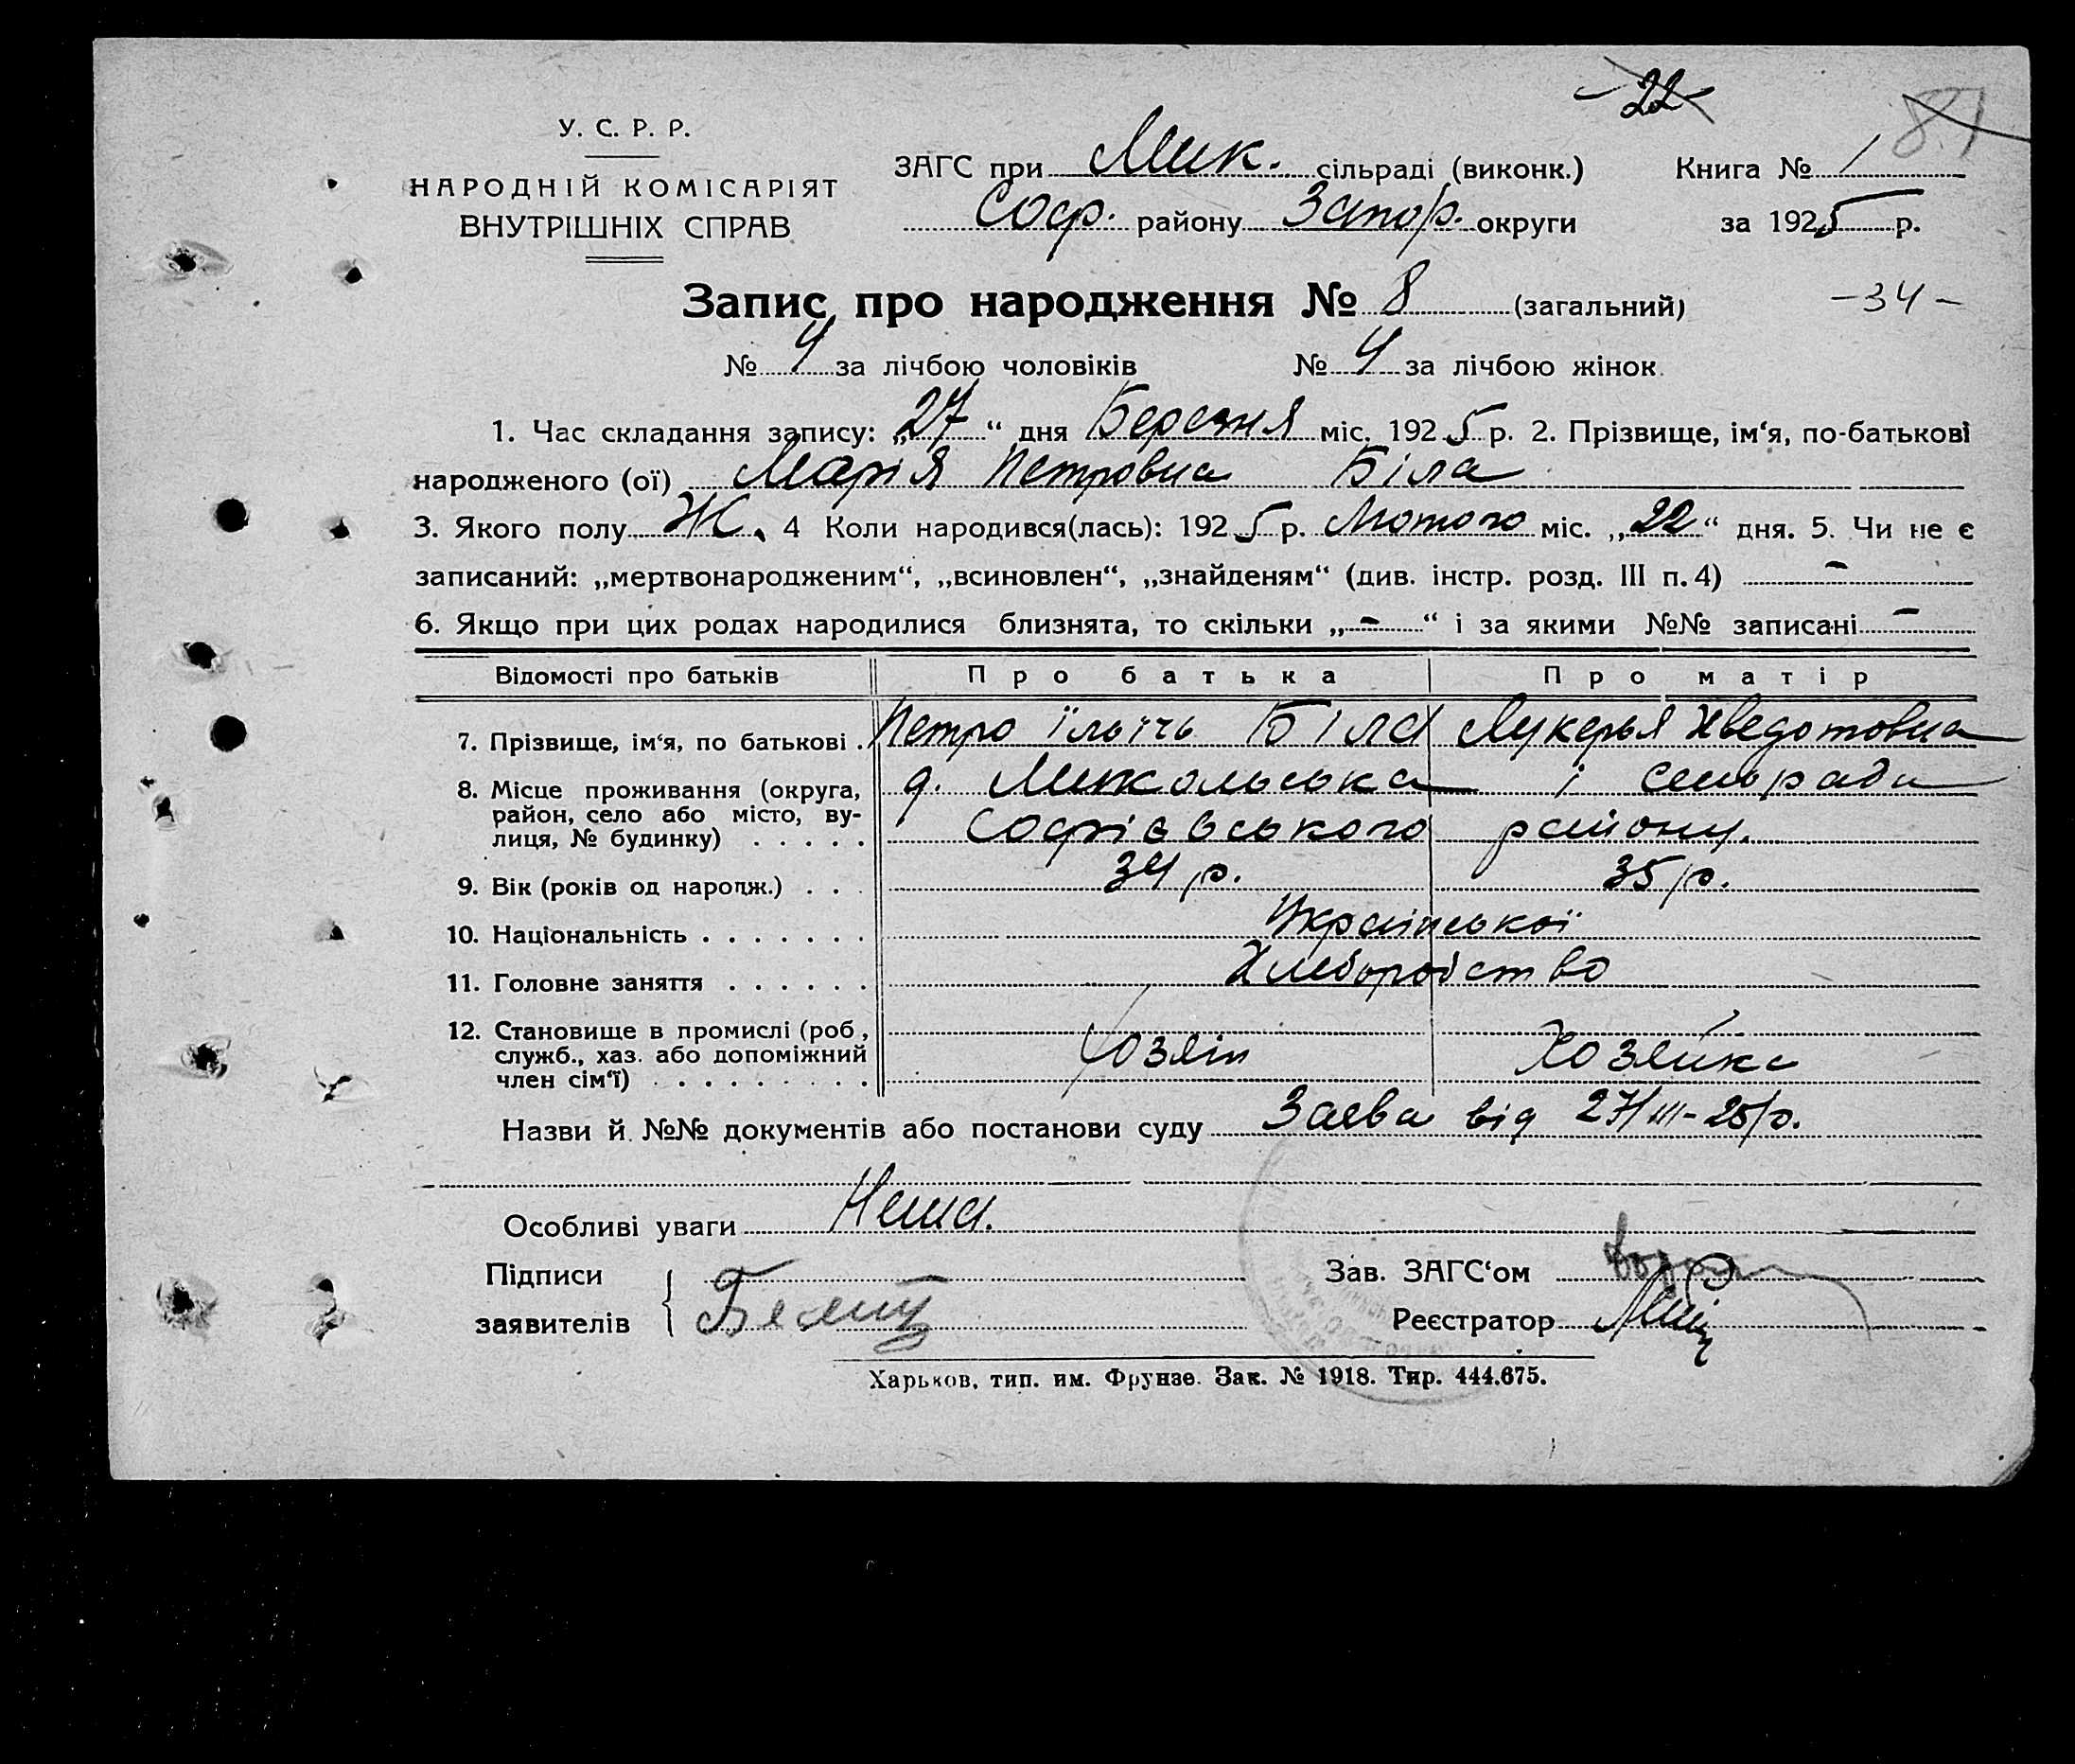 -22-
81
У. С. Р. Р.
НАРОДНІЙ КОМІСАРІЯТ
ВНУТРІШНІХ СПРАВ
ЗАГС при Мик. сільраді (виконк.) Книга № 1
Соф. району Запор. округи за 1925 р.
Запис про народження № 8 (загальний) -34-
№ 4 за лічбою чоловіків № 4 за лічбою жінок.
1. Час складання запису: „27“ дня Березня міс. 1925 р. 2. Прізвище, ім‘я, по-батькові
народженого (ої) Марія Петровна Біла
3. Якого полу Ж. 4 Коли народився(лась): 1925 р. Лютого міс. „22“ дня. 5. Чи не є
записаний: „мертвонародженим“, „всиновлен“, „знайденям“ (див. інстр. розд. III п. 4) -
6. Якщо при цих родах народилися близнята, то скільки „-“ і за якими №№ записані -
Відомості про батьків Про батька Про матір
7. Прізвище, ім‘я, по батькові . Петро Ільічь Біла Лукерья Хведотовна
8. Місце проживання (округа, д. Микольська і сельради
район, село або місто, ву- Софієвського району.
лиця, № будинку) . . . . .
9. Вік (років од народж.) . . . 34 р. 35 р.
10. Національність . . . . . . . Української
11. Головне заняття . . . . . . Хлеборобство
12. Становище в промислі (роб.,
служб., хаз. або допоміжний Хозяін Хозяйка
член сім‘ї) . . . . . . . . .
Назви й №№ документів або постанови суду Заява від 27/III-25 р.
Особливі уваги Нема.
Підписи Зав. ЗАГС‘ом
заявителів Реєстратор
Харьков, тип. им. Фрунзе. Зак. № 1918. Тир. 444.675.